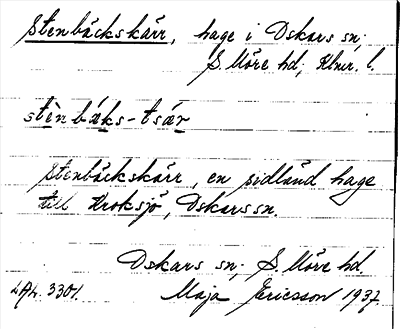 Stenbäckskärr, hage i Oskars sn;
S. Möre hd; Klmr. l.
stèn bäks-tsär
Stenbäckskärr, en sidländ hage
till Kroksjö, Oskarssn.
Oskars sn; S. Möre hd.
Maja Ericsson 1937